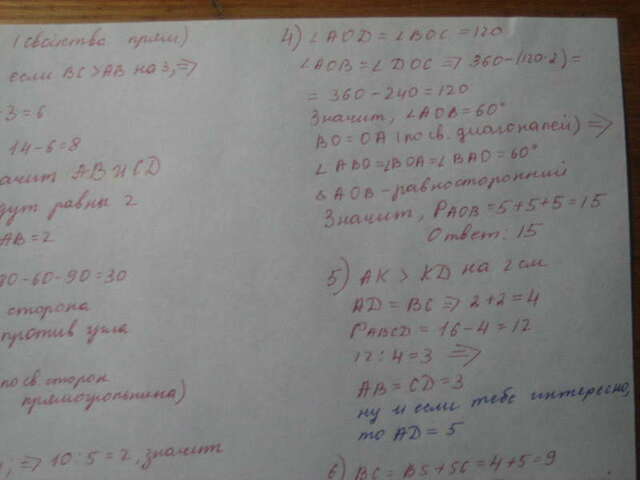 (свойства прям)
если BC > AB на 3, ⇒
-3 = 6
14 - 6 = 8
начит AB и CD
дут равны 2
AB = 2
80 - 60 - 90 = 30
сторона
против угла
по св. сторон
прямоугольника)
⇒ 10 : 5 = 2, значит
4) ∠AOD = ∠BOC = 120
∠AOB = ∠DOC ⇒ 360 - (120·2) =
= 360 - 240 = 120
Значит, ∠AOB = 60°
BO = OA (по св. диагоналей) ⇒
∠ABO = ∠BOA = ∠BAO = 60°
△AOB - равносторонний
Значит, P AOB = 5 + 5 + 5 = 15
Ответ: 15
5) AK > KD на 2 см
AD = BC ⇒ 2 + 2 = 4
P ABCD = 16 - 4 = 12
12 : 4 = 3 ⇒
AB = CD = 3
ну и если тебе интересно,
то AD = 5
6) BC = BS + SC = 4 + 5 = 9